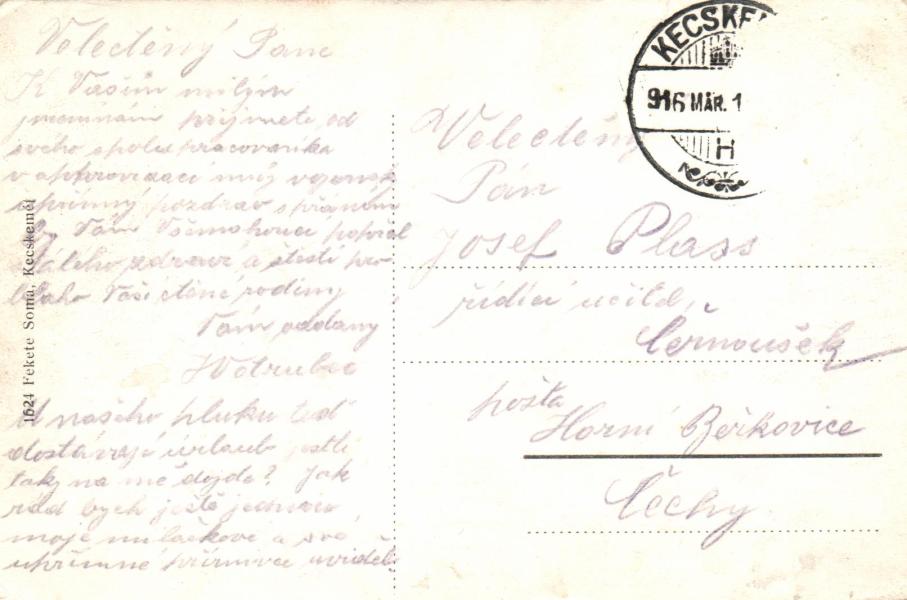 Velectěný Pane
K Vašim milým
jmeninám přijměte od
svého spolupracovníka
v aprovisaci můj vojensk
upřímný pozdrav s přáním
by Vám Všemohoucí popřál
stálého zdraví a štěstí pro
blaho Vaší ctěné rodiny
Vám oddaný
Wotruba
U našeho pluku teď
dostávají urlaub jestli
taky na mě dojde? Jak
rád bych ještě jednou
moje miláčkové a své
upřímné příznivce uviděl
Velectěný
Pán
Josef Plass
řídící učitel,
Černoušek
pošta
Horní Beřkovice
Čechy
KECSKE
916 MÁR. 1
H
1624 Fekete Soma, Kecskemét